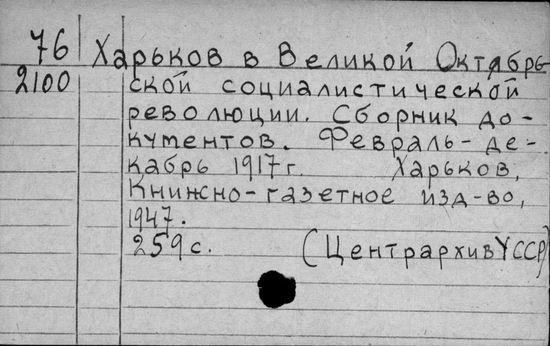 76 Харьков в Великой Октябрь-
2100 ской социалистической
революции. Сборник до-
кументов. Февраль-де-
кабрь 1917г. Харьков,
Книжно-газетное изд-во,
1947.
259с. (Центрархив УССР)